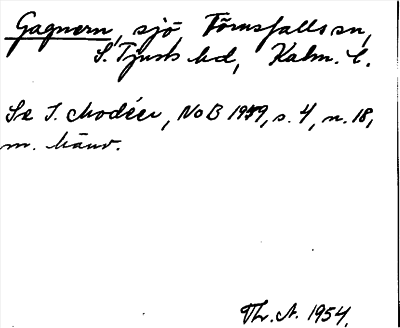 Gagnern, sjö, Törnsfalls sn,
S. Tjusts hd, Kalm. l.
Se I. Modéer, NoB 1939, s. 4, n. 18,
m. hänv.
Th. A. 1954.